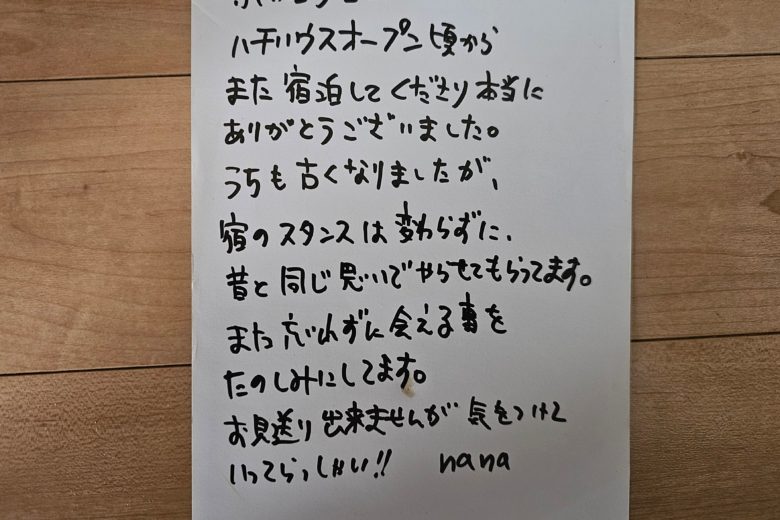 ハチハウスオープン頃から
また宿泊してくださり本当に
ありがとうございました。
うちも古くなりましたが、
宿のスタンスは変わらずに、
昔と同じ思いでやらせてもらってます。
また忘れずに会える事を
たのしみにしてます。
お見送り出来ませんが気をつけて
いってらっしゃい!! nana